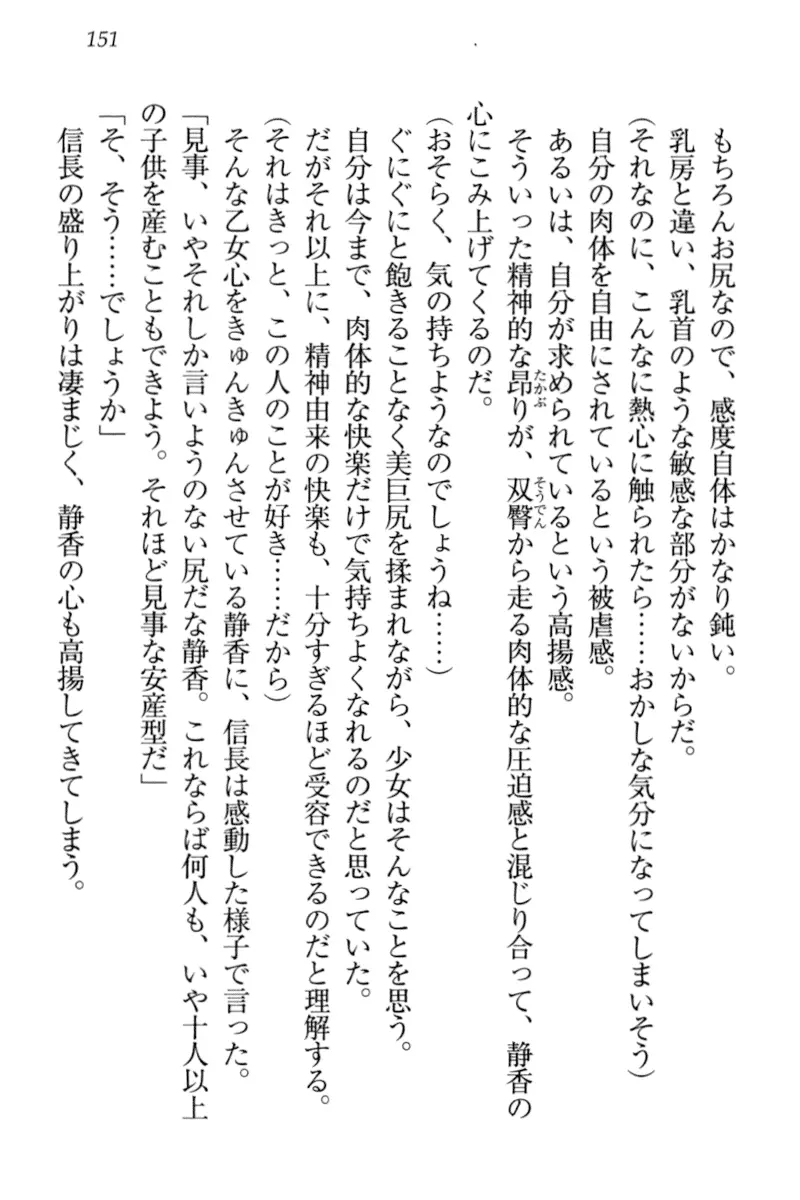 151
もちろんお尻なので、感度自体はかなり鈍い。
乳房と違い、乳首のような敏感な部分がないからだ。
(それなのに、こんなに熱心に触られたら……おかしな気分になってしまいそう)
自分の肉体を自由にされているという被虐感。
あるいは、自分が求められているという高揚感。
そういった精神的な昂りが、双臀から走る肉体的な圧迫感と混じり合って、静香の
たかぶ
そうでん
心にこみ上げてくるのだ。
(おそらく、気の持ちようなのでしょうね……)
ぐにぐにと飽きることなく美巨尻を揉まれながら、少女はそんなことを思う。
自分は今まで、肉体的な快楽だけで気持ちよくなれるのだと思っていた。
だがそれ以上に、精神由来の快楽も、十分すぎるほど受容できるのだと理解する。
(それはきっと、この人のことが好き……だから)
そんな乙女心をきゅんきゅんさせている静香に、信長は感動した様子で言った。
「見事、いやそれしか言いようのない尻だな静香。これならば何人も、いや十人以上
の子供を産むこともできよう。それほど見事な安産型だ」
「そ、そう……でしょうか」
信長の盛り上がりは凄まじく、静香の心も高揚してきてしまう。